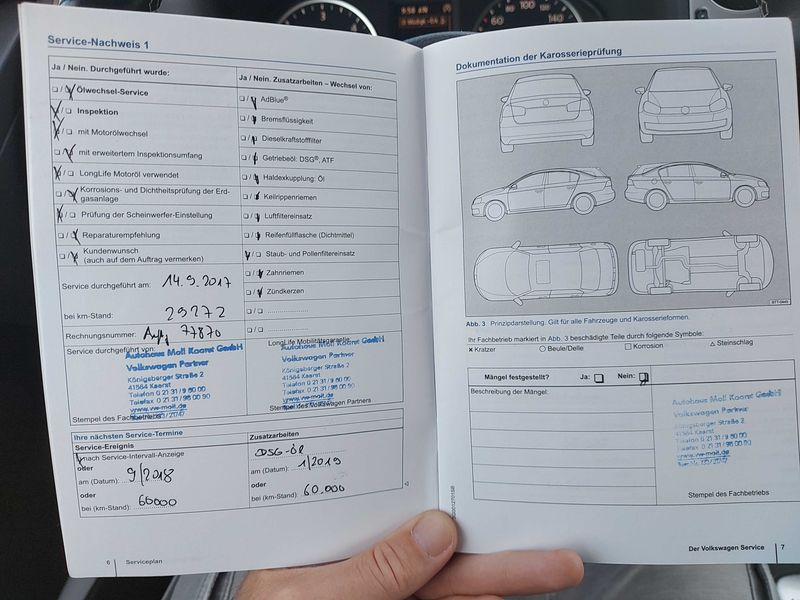 Service-Nachweis 1
Ja / Nein. Durchgeführt wurde:
Ölwechsel-Service
Inspektion
mit Motorölwechsel
mit erweitertem Inspektionsumfang
LongLife Motoröl verwendet
Korrosions- und Dichtheitsprüfung der Erd-
gasanlage
Prüfung der Scheinwerfer-Einstellung
Reparaturempfehlung
Kundenwunsch
(auch auf dem Auftrag vermerken)
Service durchgeführt am: 14.9.2017
bei km-Stand: 29272
Rechnungsnummer: 77870
Service durchgeführt von:
Autohaus Moll Kaarst GmbH
Volkswagen Partner
Königsberger Straße 2
41564 Kaarst
Telefon 0 21 31 / 9 80 00
Telefax 0 21 31 / 98 00 90
www.vw-moll.de
Stempel des Fachbetriebs
Ja / Nein. Zusatzarbeiten – Wechsel von:
AdBlue®
Bremsflüssigkeit
Dieselkraftstofffilter
Getriebeöl: DSG®, ATF
Haldexkupplung: Öl
Keilrippenriemen
Luftfiltereinsatz
Reifenfüllflasche (Dichtmittel)
Staub- und Pollenfiltereinsatz
Zahnriemen
Zündkerzen
LongLife Mobilitätsgarantie
Autohaus Moll Kaarst GmbH
Volkswagen Partner
Königsberger Straße 2
41564 Kaarst
Telefon 0 21 31 / 9 80 00
Telefax 0 21 31 / 98 00 90
www.vw-moll.de
Stempel des Volkswagen Partners
Ihre nächsten Service-Termine
Service-Ereignis
nach Service-Intervall-Anzeige
oder
am (Datum): 9/2018
oder
bei (km-Stand): 60000
Zusatzarbeiten
DSG-ÖL
am (Datum): 1/2019
oder
bei (km-Stand): 60.000
6 Serviceplan
Dokumentation der Karosserieprüfung
Abb. 3 Prinzipdarstellung. Gilt für alle Fahrzeuge und Karosserieformen.
Ihr Fachbetrieb markiert in Abb. 3 beschädigte Teile durch folgende Symbole:
× Kratzer ○ Beule/Delle □ Korrosion △ Steinschlag
Mängel festgestellt? Ja: Nein:
Beschreibung der Mängel:
Autohaus Moll Kaarst GmbH
Volkswagen Partner
Königsberger Straße 2
41564 Kaarst
Telefon 0 21 31 / 9 80 00
Telefax 0 21 31 / 98 00 90
www.vw-moll.de
Stempel des Fachbetriebs
Der Volkswagen Service 7